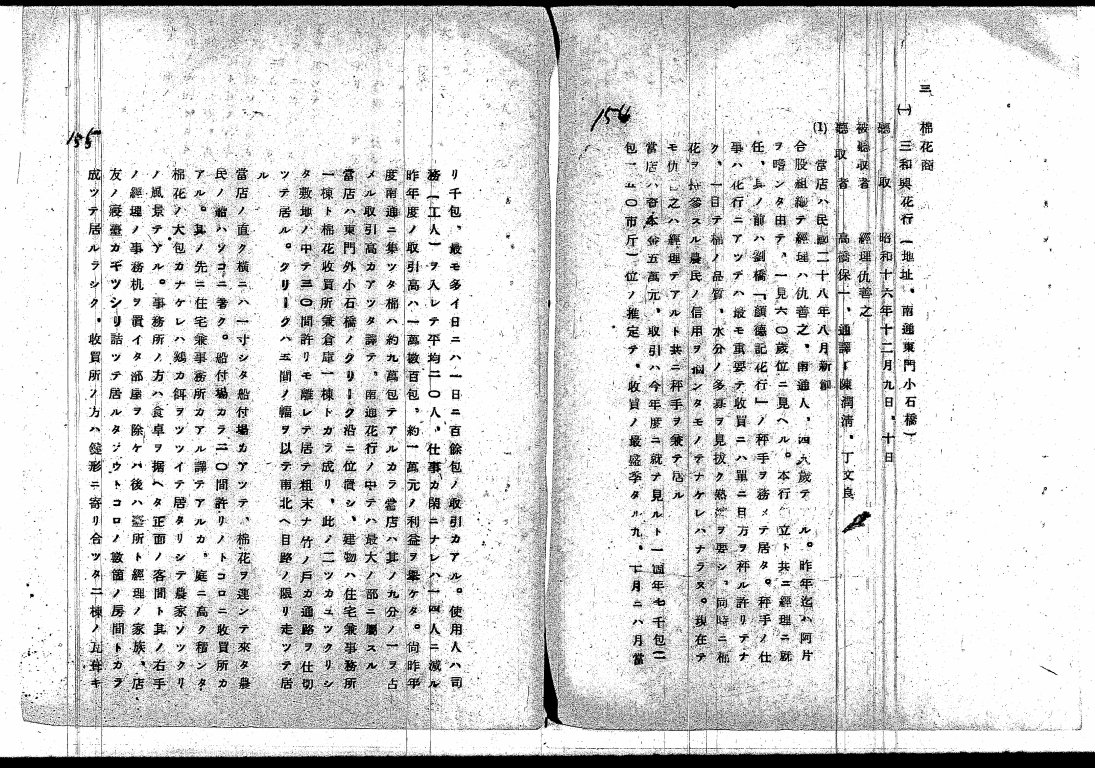 三 棉花商
(一) 三和興花行(地址、南通東門小石橋)
聽取 昭和十六年十二月九日、十日
被聽取者 經理仇善之
聽取者 高橋保一、通譯 陳潤清、丁文良
(1) 當店ハ民國二十八年八月新創
合股組織テ經理ハ仇善之、南通人、四九歲テ ル。昨年迄ハ阿片
ヲ嗜ンタ由テ、一見六〇歲位ニ見ヘル。本行ハ立ト共ニ經理ニ就
任、其ノ前ハ劉橋「顧德記花行」ノ秤手ヲ務メテ居タ。秤手ノ仕
事ハ花行ニアツテハ最モ重要テ收買ニハ單ニ目方ヲ秤ル許リテナ
ク、一目テ棉ノ品質、水分ノ多寡ヲ見拔ク熟 ヲ要シ、同時ニ棉
花ヲ持參スル農民ノ信用ヲ ンタモノテナケレハナラヌ。現在テ
モ仇 之ハ經理テアルト共ニ秤手ヲ兼テ居ル
當店ハ資本金五萬元、取引ハ今年度ニ就テ見ルト一個年七千包(二
包一五〇市斤)位ノ推定テ、收買ノ最盛季タル九、十月ニハ月當
156
リ千包、最モ多イ日ニハ一日ニ百餘包ノ取引カアル。使用人ハ司
務(工人)ヲ入レテ平均二〇人、仕事カ閑ニナレハ一四人ニ減ル
昨年度ノ取引高ハ一萬數百包、約一萬元ノ利益ヲ擧ケタ。尙昨年
度南通ニ集ツタ棉ハ約九萬包テアルカラ當店ハ其ノ九分ノ一ヲ占
メル取引高カアツタ譯テ、南通花行ノ中テハ最大ノ部ニ屬スル
當店ハ東門外小石橋ノクリーク沿ニ位置シ、建物ハ住宅兼事務所
一棟ト棉花收買所兼倉庫一棟トカラ成リ、此ノ二ツカユツクリシ
タ敷地ノ中テ三〇間許リモ離レテ居テ粗末ナ竹ノ戶カ通路ヲ仕切
ツテ居ル。クリークハ五間ノ幅ヲ以テ南北ヘ目路ノ限リ走ツテ居
ル
當店ノ直ク橫ニハ一寸シタ船付場カアツテ、棉花ヲ運ンテ來タ農
民ノ船ハソコニ着ク。船付場カラ二〇間許リノトコロニ收買所カ
アル。其ノ先ニ住宅兼事務所カアル譯テアルカ、庭ニ高ク積ンタ
棉花ノ大包カナケレハ鷄カ餌ヲツツイテ居タリシテ農家ソツクリ
ノ風景テアル。事務所ノ方ハ食卓ヲ据ヘタ正面ノ客間ト其ノ右手
ノ經理ノ事務机ヲ置イタ部屋ヲ除ケハ後ハ臺所ト經理ノ家族、店
友ノ寢臺カギツシリ詰ツテ居ルタ ウトコロノ數箇ノ房間トカラ
成ツテ居ルラシク、收買所ノ方ハ 形ニ寄リ合ツタ二棟ノ瓦葺キ
155